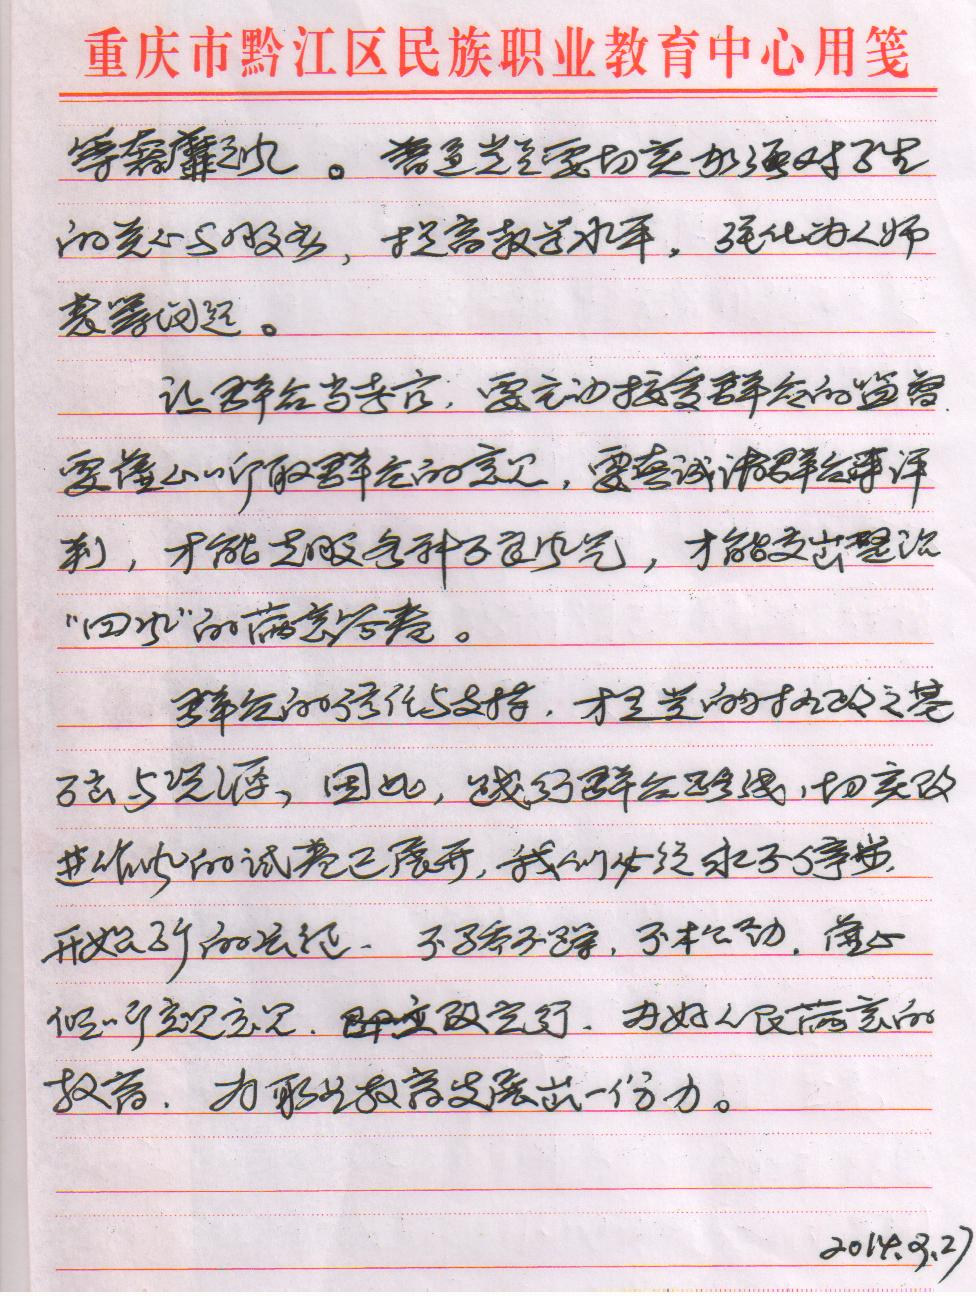 重庆市黔江区民族职业教育中心用笺
等奢靡之风。普通党员要切实加强对学生
的关心与服务,提高教学水平,强化为人师
表等问题。
让群众当考官,要主动接受群众的监督
要虚心听取群众的意见,要真诚请群众来评
判,才能克服各种不良风气,才能交出整治
“四风”的满意答卷。
群众的信任与支持,才是党的执政之基
础与源,因此,践行群众路线,切实改
进作风的试卷已展开,我们必须
开始的不骄不躁,不,虚心
听意见,即改,办好人民满意的
教育,为职业教育发展出一份力。
2014.3.27